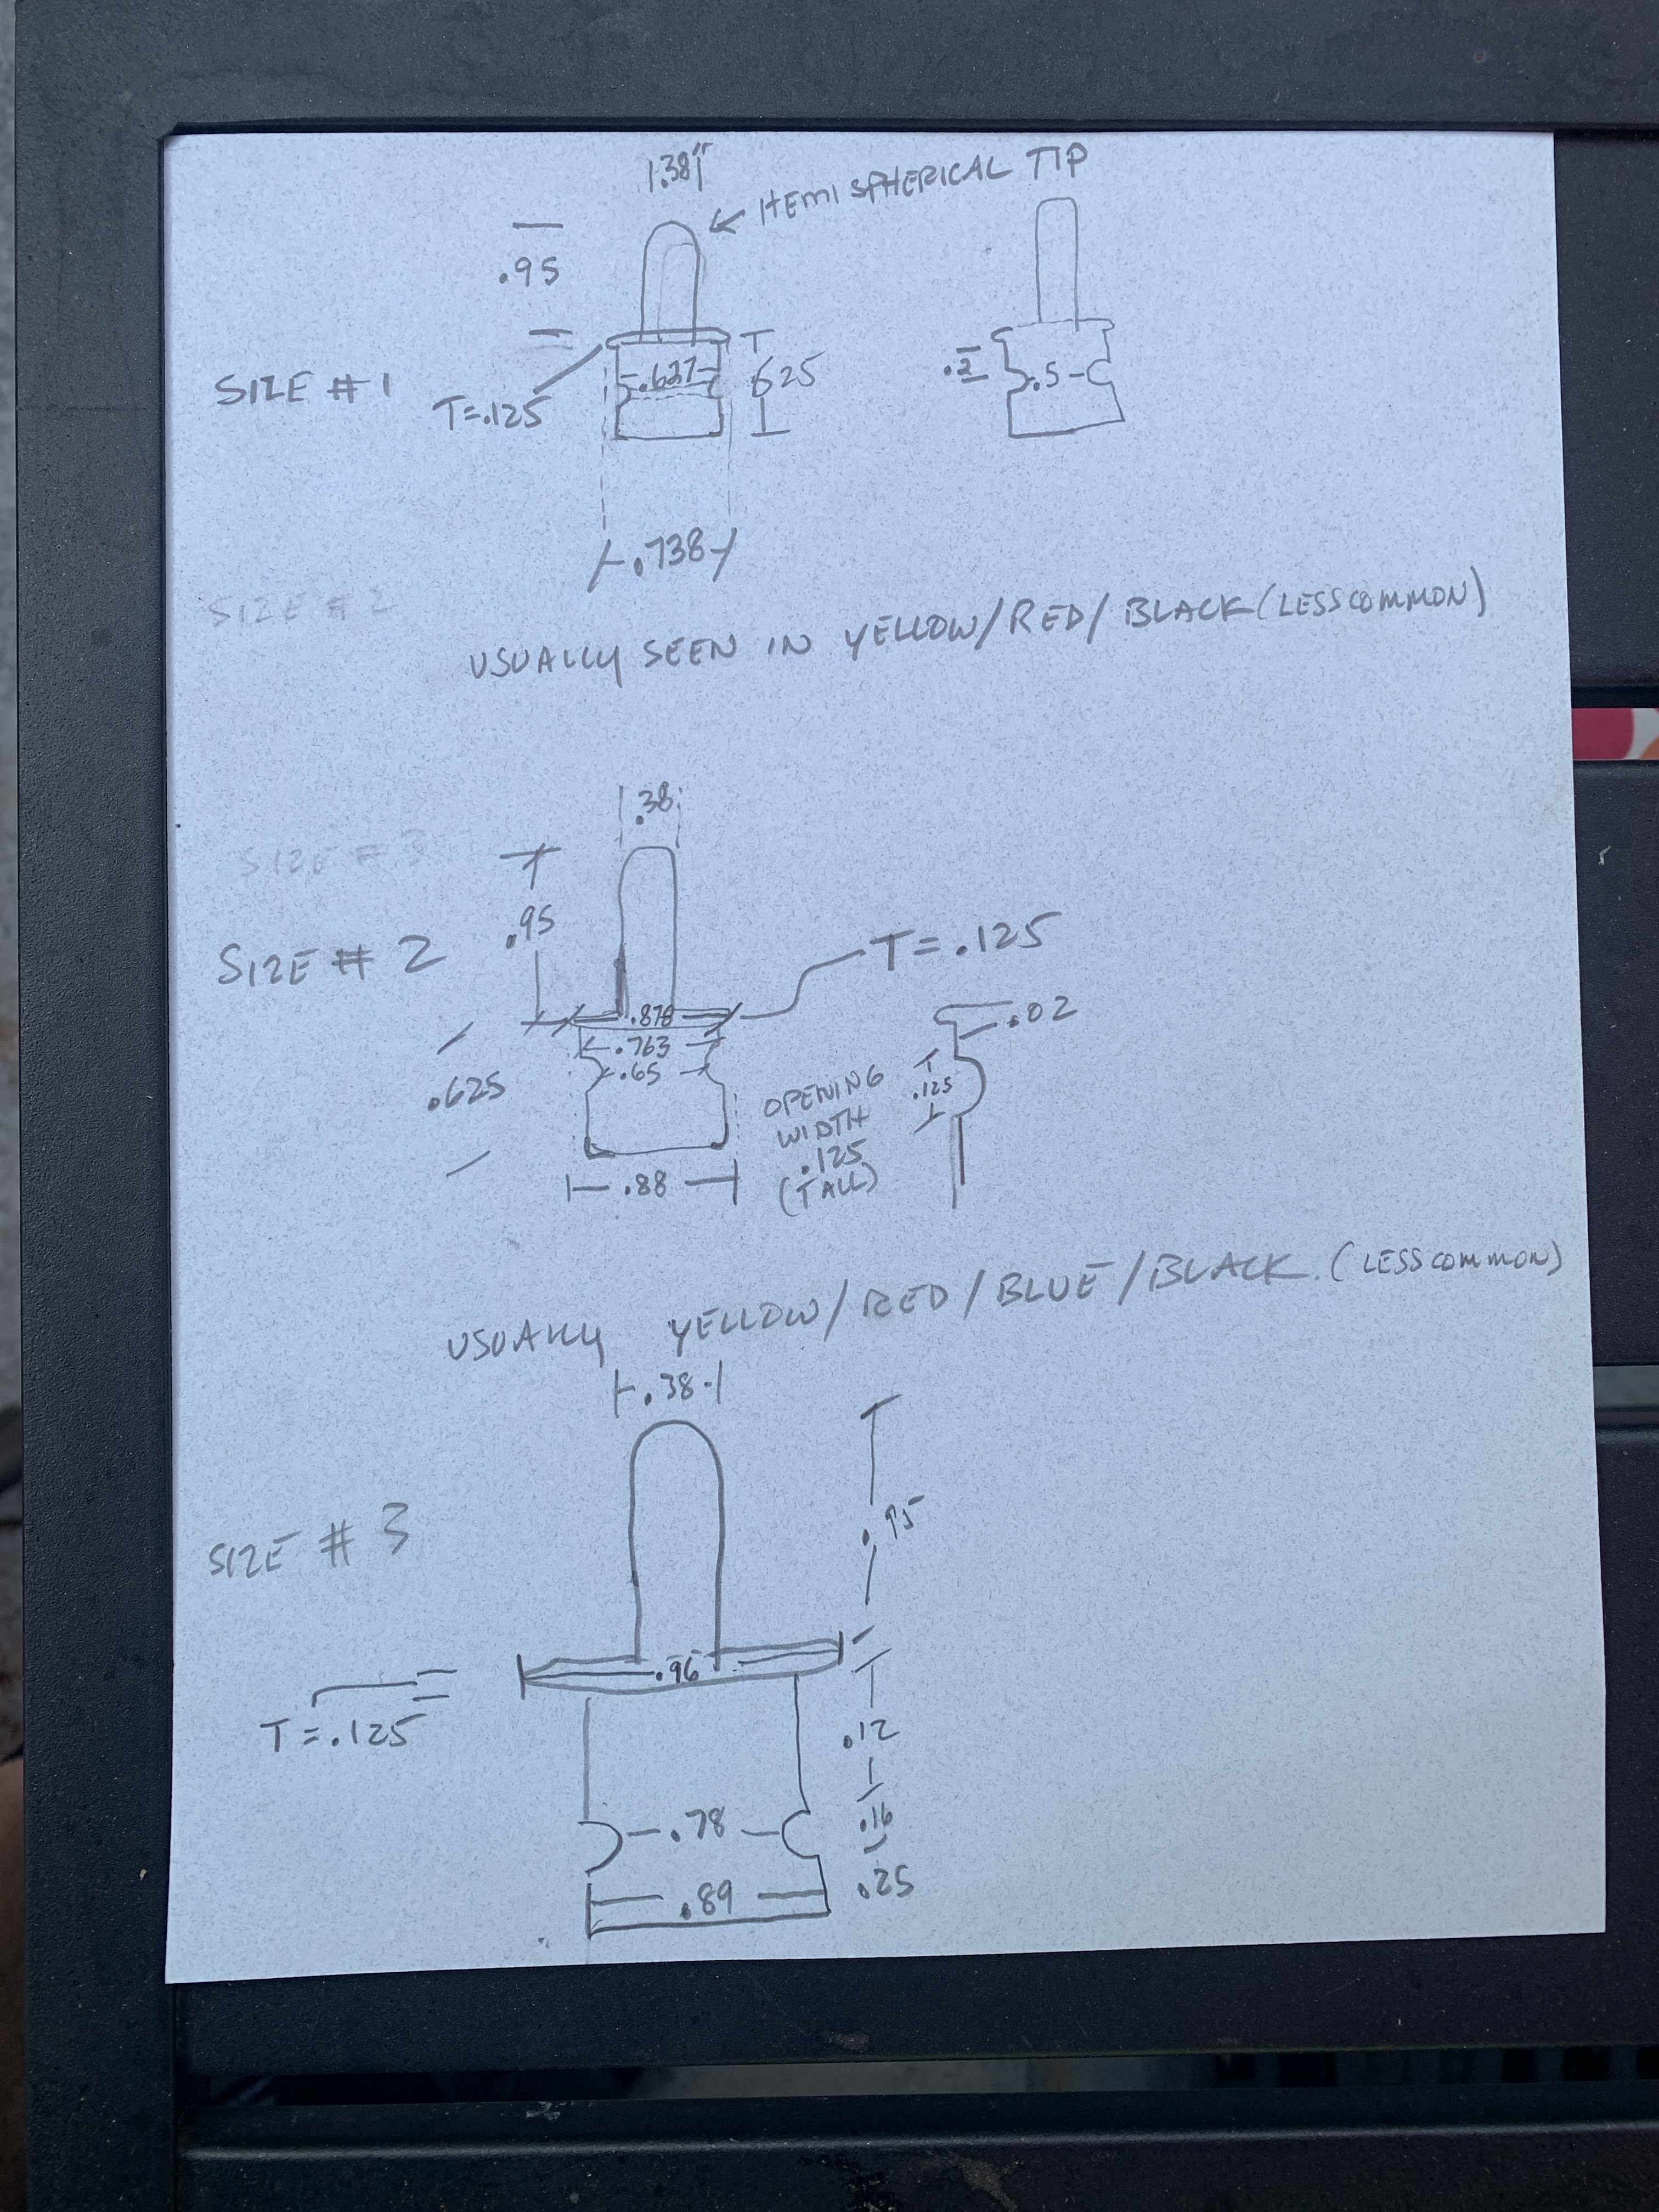 .38"
HEMISPHERICAL TIP
.95
SIZE # 1
T=.125
.637
.625
.2
.5
.738
SIZE # 2
USUALLY SEEN IN YELLOW/RED/BLACK (LESS COMMON)
.38
SIZE # 3
.95
SIZE # 2
T=.125
.878
.763
.65
.02
.625
OPENING
WIDTH
.125
(TALL)
.125
.88
USUALLY YELLOW/RED/BLUE/BLACK. (LESS COMMON)
.38
SIZE # 3
.95
.96
T=.125
.12
.78
.16
.25
.89